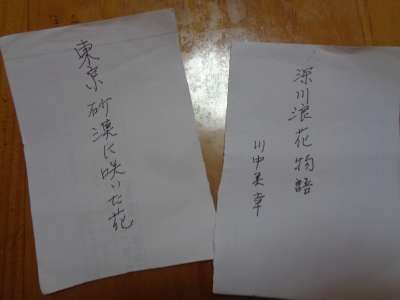 東京砂漠に咲いた花
深川浪花物語
川中美幸